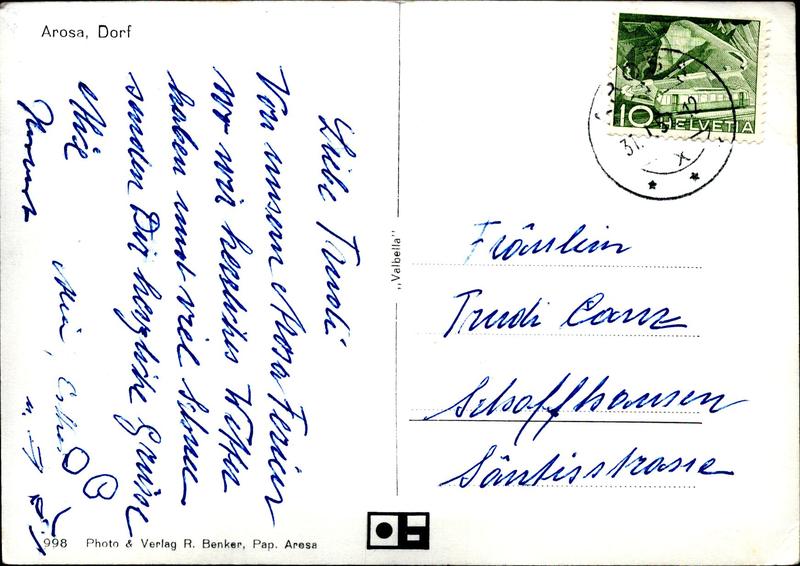 Arosa, Dorf
Liebe Trudi
Von unsern Arosa Ferien
wo wir herrliches Wetter
haben und viel Sonne
senden Dir herzliche Grüsse
Alice
"Valbella"
998 Photo & Verlag R. Benker, Pap. Arosa
10 HELVETIA
Fräulein
Trudi Canz
Schaffhausen
Säntisstrasse